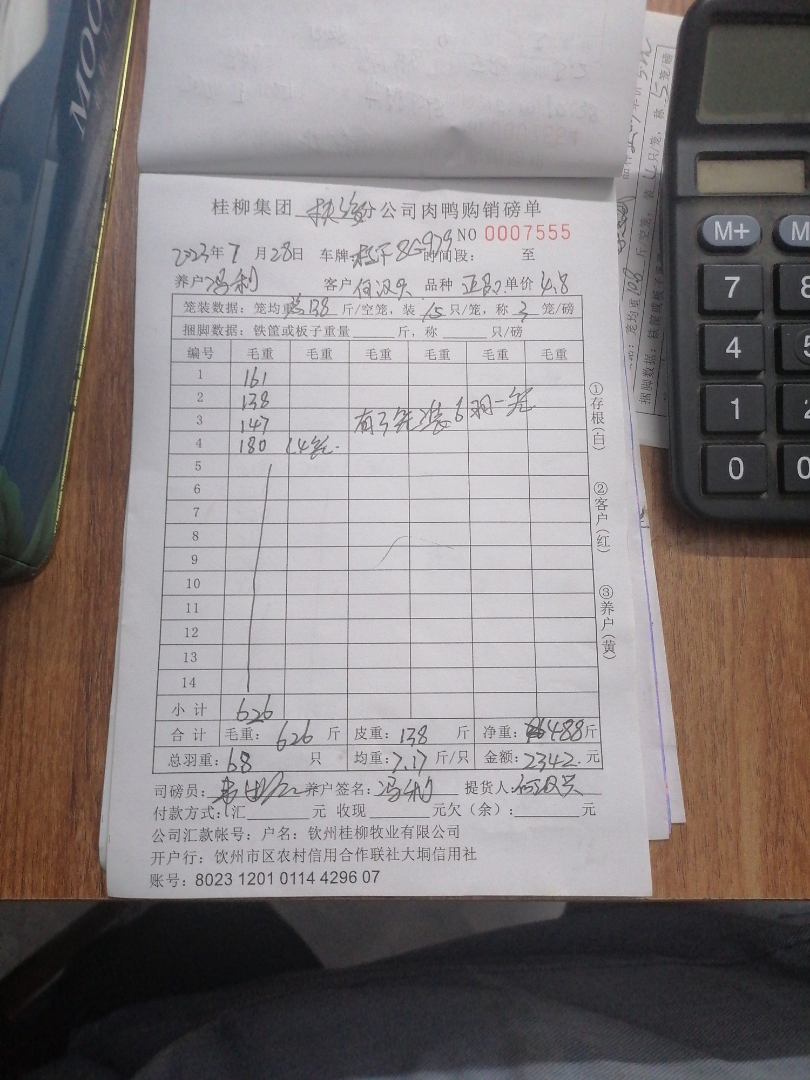 MOO
桂柳集团 分公司肉鸭购销磅单
NO 0007555
2023年7月28日 车牌: 8G979 时间段: 至
养户 冯利 客户 何汉兴 品种 单价 4.8
笼装数据: 笼均重 138 斤/空笼, 装 15 只/笼, 称 3 笼/磅
捆脚数据: 铁筐或板子重量 斤, 称 只/磅
编号 毛重 毛重 毛重 毛重 毛重 毛重
1 161
2 138
3 147 有3笼装6羽一笼
4 180 (4笼.
5
6
7
8
9
10
11
12
13
14
小计 626
合计 毛重: 626 斤 皮重: 138 斤 净重: 488斤
总羽重: 68 只 均重: 7.17 斤/只 金额: 2342. 元
司磅员: 养户签名: 冯利 提货人: 何汉兴
付款方式: 汇 元 收现 元欠(余): 元
公司汇款帐号: 户名: 钦州桂柳牧业有限公司
开户行: 钦州市区农村信用合作联社大垌信用社
账号: 8023 1201 0114 4296 07
①存根(白)
②客户(红)
③养户(黄)
M+
7
4
1
0